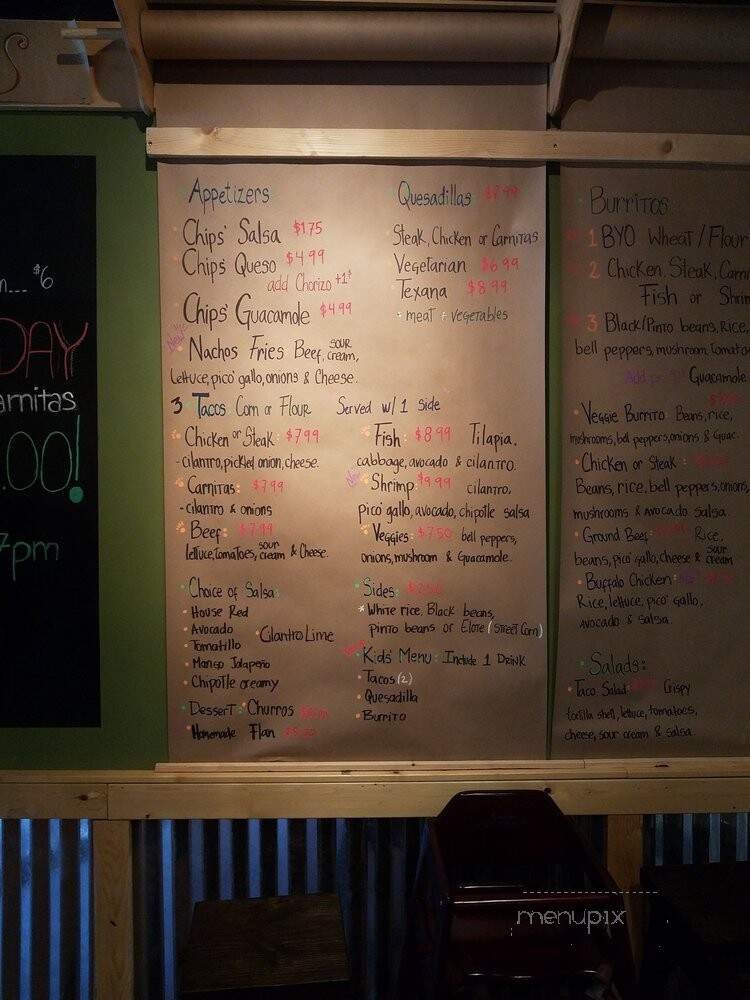 m... $6
DAY
arnitas
.00!
7pm
Appetizers
Chips' Salsa $1.75
Chips' Queso $4.99
add Chorizo +1$
Chips' Guacamole $4.99
Nachos Fries Beef, sour cream,
lettuce, pico' gallo, onions & Cheese.
Quesadillas
Steak, Chicken or Carnitas
Vegetarian $6.99
Texana $8.99
meat & vegetables
3 Tacos: Corn or Flour Served w/ 1 side
Chicken or Steak: $7.99
- cilantro, pickled onion, cheese.
Carnitas: $7.99
- cilantro & onions
Beef: $7.99
lettuce, tomatoes, sour cream & Cheese.
Fish: $8.99 Tilapia.
cabbage, avocado & cilantro.
Shrimp $9.99 cilantro,
pico' gallo, avocado, chipotle salsa
Veggies: $7.50 bell peppers,
onions, mushroom & Guacamole.
Choice of Salsa:
House Red
Avocado
Tomatillo
Cilantro Lime
Mango Jalapeño
Chipotle creamy
Dessert: Churros
Homemade Flan
Sides: $2.50
White rice, Black beans,
pinto beans or Elote (Street Corn)
Kids' Menu: Include 1 Drink
Tacos (2)
Quesadilla
Burrito
Burritos
1 BYO Wheat / Flour
2 Chicken, Steak, Carn
Fish or Shrim
3 Black/Pinto beans, Rice,
bell peppers, mushroom, tomato
Guacamole
Veggie Burrito: Beans, rice,
mushrooms, bell peppers, onions & Guac.
Chicken or Steak
Beans, rice, bell peppers, onions,
mushrooms & avocado salsa.
Ground Beef Rice,
beans, pico' gallo, cheese & sour cream
Buffalo Chicken
Rice, lettuce, pico' gallo,
avocado & salsa.
Salads:
Taco Salad Crispy
tortilla shell, lettuce, tomatoes,
cheese, sour cream & salsa.
menupix